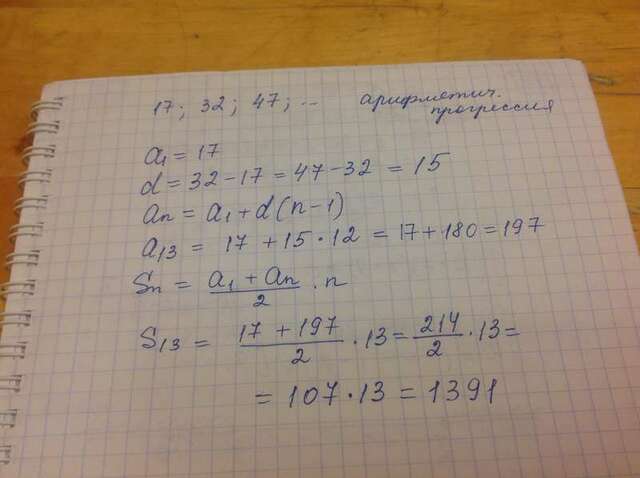 17; 32; 47; ... арифметич.
прогрессия
a₁ = 17
d = 32 - 17 = 47 - 32 = 15
aₙ = a₁ + d(n-1)
a₁₃ = 17 + 15 · 12 = 17 + 180 = 197
Sₙ = (a₁ + aₙ)/2 · n
S₁₃ = (17 + 197)/2 · 13 = 214/2 · 13 =
= 107 · 13 = 1391